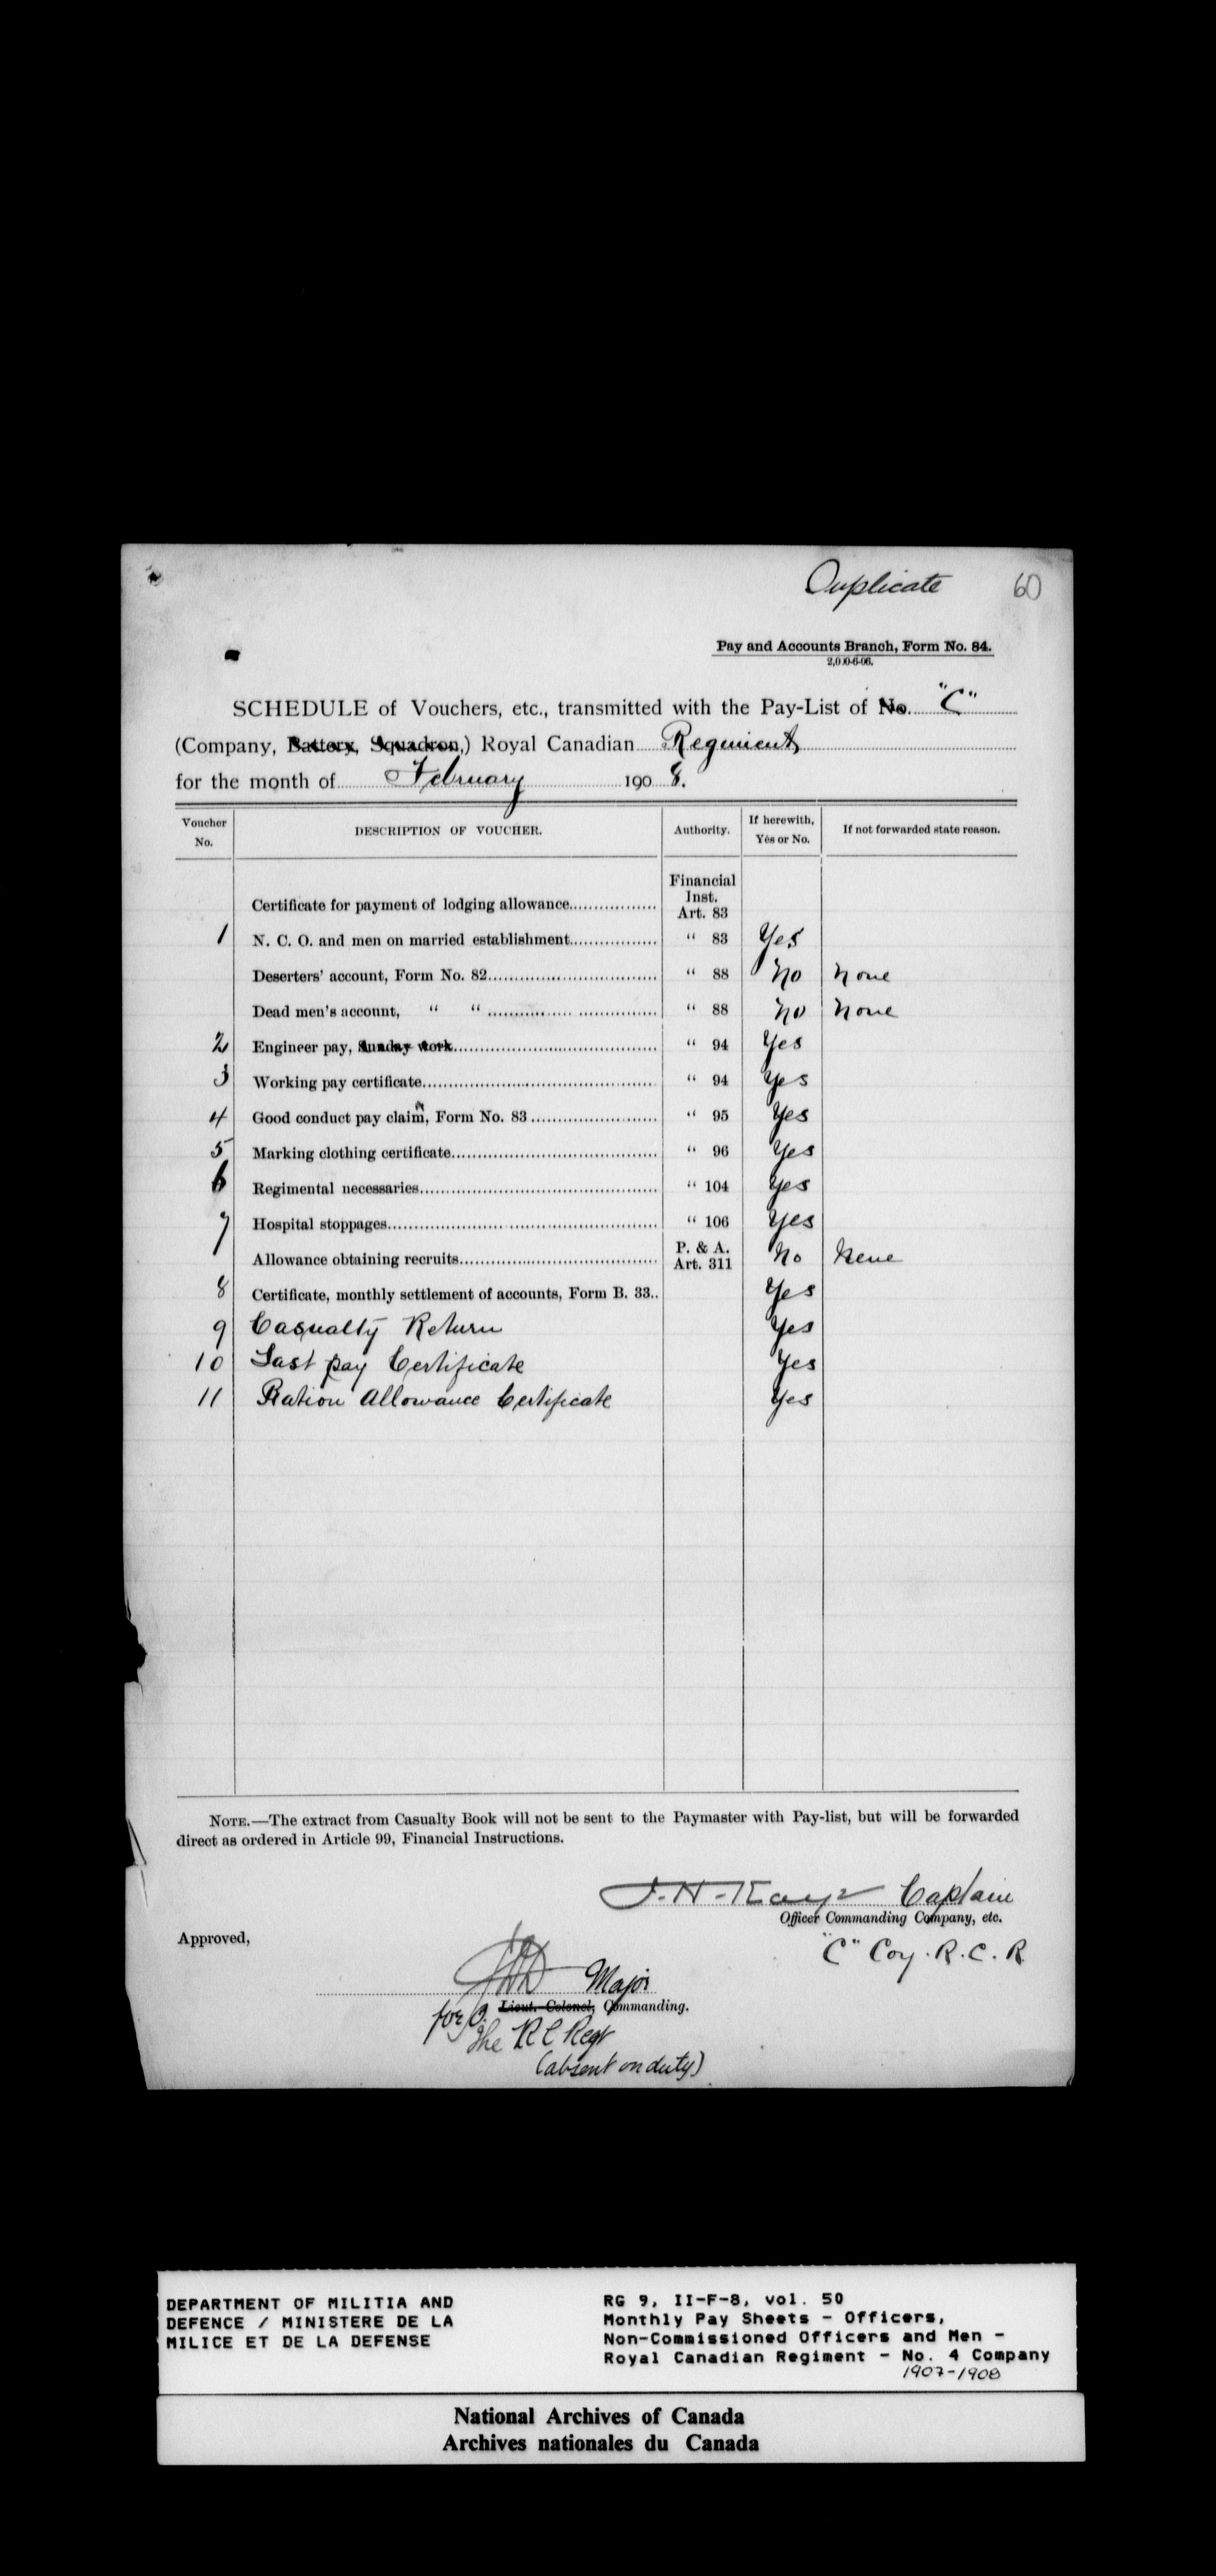 Duplicate 60
Pay and Accounts Branch, Form No. 84.
2,000-6-06.
SCHEDULE of Vouchers, etc., transmitted with the Pay-List of No. "C"
(Company, Battery, Squadron,) Royal Canadian Regiment
for the month of February 1908.
Voucher No. DESCRIPTION OF VOUCHER. Authority. If herewith, Yes or No. If not forwarded state reason.
Certificate for payment of lodging allowance Financial Inst. Art. 83
1 N. C. O. and men on married establishment " 83 Yes
Deserters' account, Form No. 82 " 88 No None
Dead men's account, " " " 88 No None
2 Engineer pay, Sunday work " 94 Yes
3 Working pay certificate " 94 Yes
4 Good conduct pay claim, Form No. 83 " 95 Yes
5 Marking clothing certificate " 96 Yes
6 Regimental necessaries " 104 Yes
7 Hospital stoppages " 106 Yes
Allowance obtaining recruits P. & A. Art. 311 No None
8 Certificate, monthly settlement of accounts, Form B. 33.. Yes
9 Casualty Return Yes
10 Last pay Certificate Yes
11 Ration Allowance Certificate Yes
NOTE.—The extract from Casualty Book will not be sent to the Paymaster with Pay-list, but will be forwarded
direct as ordered in Article 99, Financial Instructions.
J.H. Kaye Captain
Officer Commanding Company, etc.
"C" Coy. R.C.R
Approved,
Major
for O. Lieut.-Colonel, Commanding.
The R C Regt
(absent on duty)
DEPARTMENT OF MILITIA AND
DEFENCE / MINISTERE DE LA
MILICE ET DE LA DEFENSE
RG 9, II-F-8, vol. 50
Monthly Pay Sheets - Officers,
Non-Commissioned Officers and Men -
Royal Canadian Regiment - No. 4 Company
1907-1908
National Archives of Canada
Archives nationales du Canada